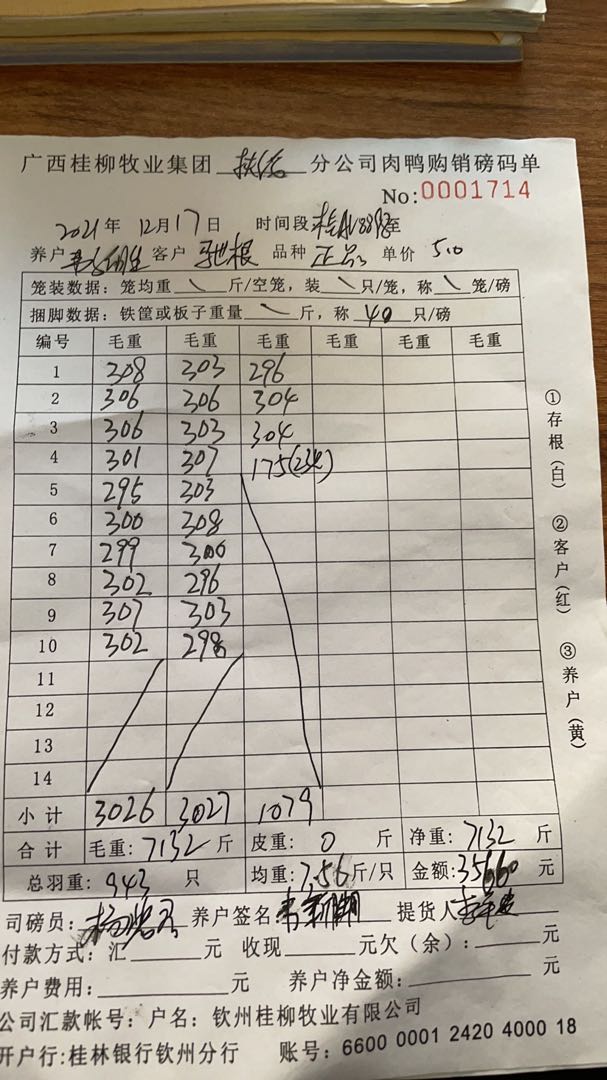 广西桂柳牧业集团 扶绥 分公司肉鸭购销磅码单
No:0001714
2021年 12月17日 时间段 至
养户 客户 驰根 品种 正品 单价 5.0
笼装数据: 笼均重 \ 斤/空笼, 装 \ 只/笼, 称 \ 笼/磅
捆脚数据: 铁筐或板子重量 \ 斤, 称 40 只/磅
编号 毛重 毛重 毛重 毛重 毛重 毛重
1 308 303 296
2 306 306 304
3 306 303 304
4 301 307 175(23只)
5 295 303
6 300 308
7 299 300
8 302 296
9 307 303
10 302 298
11
12
13
14
小计 3026 3027 1079
合计 毛重: 7132 斤 皮重: 0 斤 净重: 7132 斤
总羽重: 943 只 均重: 7.56 斤/只 金额: 35660 元
司磅员: 养户签名 提货人
付款方式: 汇 元 收现 元欠(余): 元
养户费用: 元 养户净金额: 元
公司汇款帐号: 户名: 钦州桂柳牧业有限公司
开户行:桂林银行钦州分行 账号: 6600 0001 2420 4000 18
①存根(白) ②客户(红) ③养户(黄)